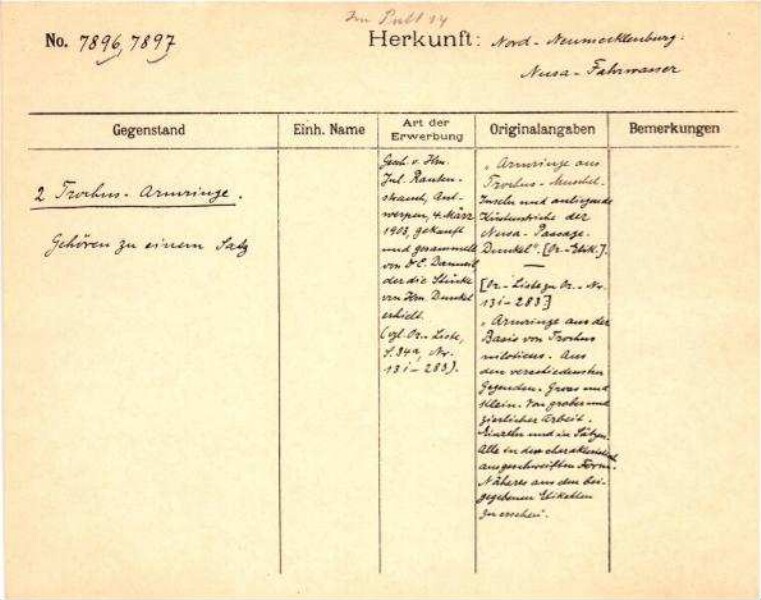 Im Pult 14
No. 7896, 7897
Herkunft: Nord-Neumecklenburg:
Nusa-Fahrwasser
Gegenstand
Einh. Name
Art der
Erwerbung
Originalangaben
Bemerkungen
2 Trochus-Armringe.
Gehören zu einem Satz
Gesch. v. Hrn.
Jul. Rauten-
strauch, Ant-
werpen, 4. März
1903, gekauft
und gesammelt
von Dr E.
der die Stücke
von Hrn. Dunkel
erhielt.
(vgl. Or.-Liste,
S. 34a, Nr.
13i-283).
„Armringe aus
Trochus-Muschel.
Inseln und anliegende
Küstenstriche der
Nusa-Passage.
Dunkel". [Or-Etik.].
[Or-Liste zu Or.-Nr.
13i-283]
„Armringe aus der
Basis von Trochus
niloticus. Aus
den verschiedensten
Gegenden. Gross und
Klein. Von grober und
zierlicher Arbeit.
Einzeln und in Sätzen.
Alle in der charakteristisch
ausgeschweiften Form.
Näheres aus den bei-
gegebenen Etiketten
zu ersehen".